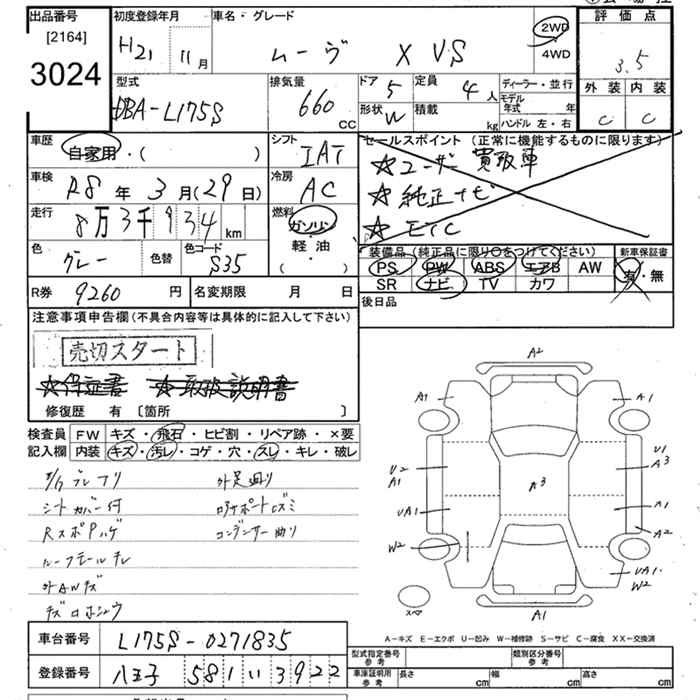 出品番号
[2164]
3024
初度登録年月
H21 11月
車名・グレード
ムーヴ X VS
2WD
4WD
評価点
3.5
外装 内装
C C
型式
DBA-L175S
排気量
660 cc
ドア 5
定員 4人
形状 W
積載 kg
ディーラー・並行
モデル年式 年
ハンドル 左・右
車歴
自家用・( )
シフト
IAT
セールスポイント (正常に機能するものに限ります)
☆ユーザー買取車
☆純正ナビ
☆ETC
車検
R8年3月(29日)
冷房
AC
走行
8万3千934km
燃料
ガソリン
軽油
( ・ )
色
グレー
色替
色コード
S35
装備品 (純正品に限り○をつけてください)
PS PW ABS エアB AW
SR ナビ TV カワ
新車保証書
有・無
R券 9260円
名変期限 月 日
後日品
注意事項申告欄(不具合内容等は具体的に記入して下さい)
売切スタート
☆保証書 ☆取扱説明書
修復歴 有 [箇所 ]
検査員 FW キズ・飛石・ヒビ割・リペア跡・×要
記入欄 内装 キズ・汚レ・コゲ・穴・スレ・キレ・破レ
シートカバー付
RスポPハゲ
外AWキズ
外足廻り
ロアサポートCズミ
コンデンサー曲り
A2
A1 A1
U2
A1
U1
A3
A3
UA1
A1
A2
W2
UA1
W2
スペア
A1
A-キズ E-エクボ U-凹み W-補修跡 S-サビ C-腐食 XX-交換済
車台番号 L175S-0271835
登録番号 八王子 581 い 3922
型式指定番号 参考
類別区分番号 参考
車庫証明用 参考 長さ cm 幅 cm 高さ cm